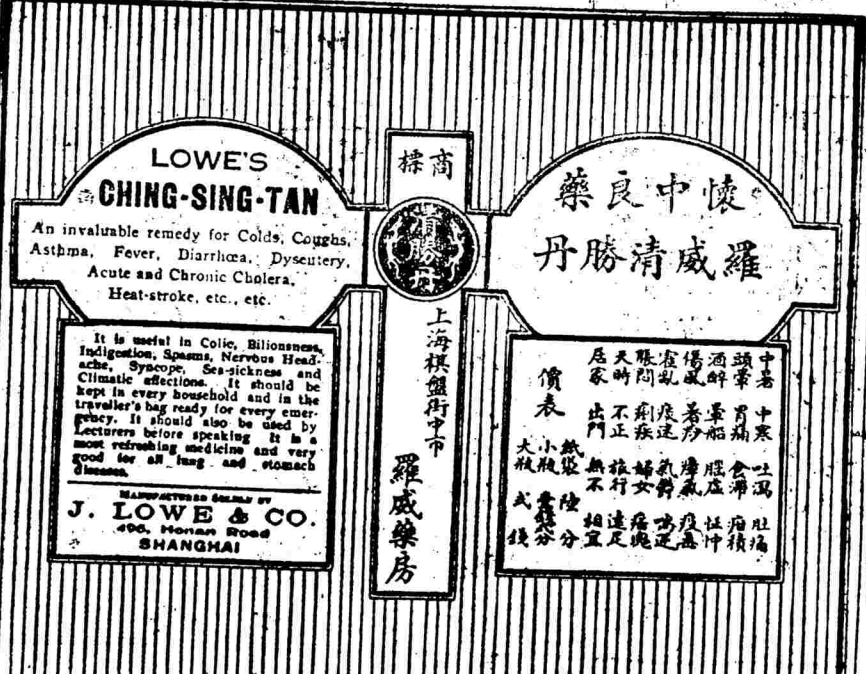 LOWE'S
CHING-SING-TAN
An invaluable remedy for Colds, Coughs,
Asthma, Fever, Diarrhœa, Dysentery,
Acute and Chronic Cholera,
Heat-stroke, etc., etc.
It is useful in Colic, Biliousness,
Indigestion, Spasms, Nervous Head-
ache, Syncope, Sea-sickness and
Climatic affections. It should be
kept in every household and in the
traveller's bag ready for every emer-
gency. It should also be used by
Lecturers before speaking It is a
most refreshing medicine and very
good for all lung and stomach
diseases.
MANUFACTURED SOLELY BY
J. LOWE & CO.
496, Honan Road
SHANGHAI
商標
清勝丹
上海棋盤街中市
羅威藥房
懷中良藥
羅威清勝丹
中暑 中寒 吐瀉 肚痛
頭暈 胃痛 食滯 疳積
酒醉 暈船 腦虛 怔忡
傷風 暑痧 瘴氣 疫毒
霍亂 痰迷 氣鬱 喘逆
脹悶 痢疾 婦女
天時 不正 旅行 遠足
居家 出門 無不 相宜
價表
紙袋 陸分
小瓶 分
大瓶 弍錢